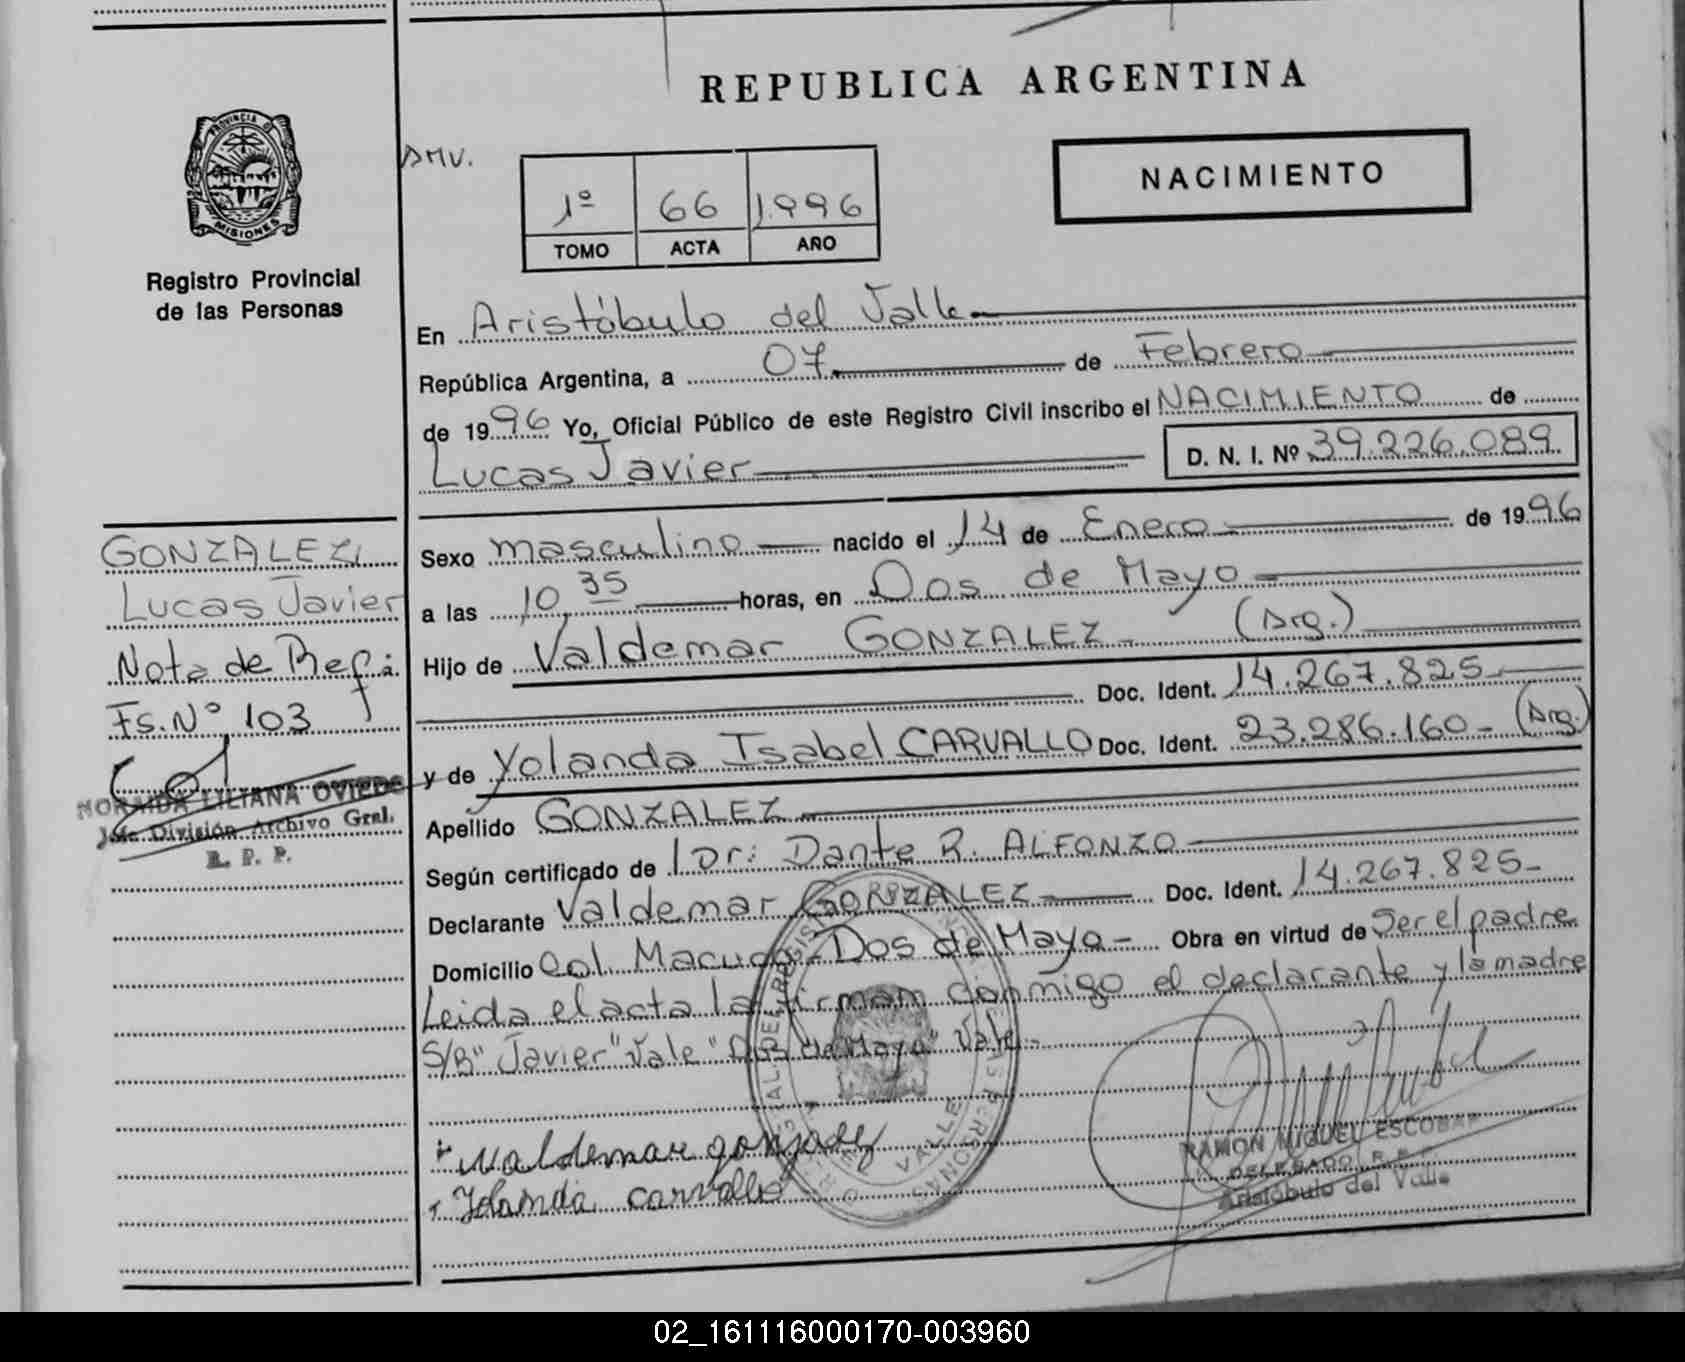 REPUBLICA ARGENTINA
PROVINCIA D
MISIONES
Registro Provincial
de las Personas
DMV.
1º 66 1.996
TOMO ACTA AÑO
NACIMIENTO
En Aristóbulo del Valle
República Argentina, a 07 de Febrero
de 1996 Yo, Oficial Público de este Registro Civil inscribo el NACIMIENTO de
Lucas Javier D. N. I. Nº 39.226.089
Sexo masculino nacido el 14 de Enero de 1996
a las 10,35 horas, en Dos de Mayo
Hijo de Valdemar GONZALEZ (Arg.)
Doc. Ident. 14.267.825
y de Yolanda Isabel CARVALLO Doc. Ident. 23.286.160 (Arg.)
Apellido GONZALEZ
Según certificado de Dr: Dante R. ALFONZO
Declarante Valdemar GONZALEZ Doc. Ident. 14.267.825
Domicilio Col. Macuco Dos de Mayo Obra en virtud de Ser el padre
Leida el acta la firman conmigo el declarante y la madre
S/B" Javier" Vale " Dos de Mayo" Vale
Valdemar gonzalez
Yolanda carvallo
RAMON MIGUEL ESCOBAR
DELEGADO R. P. P.
Aristóbulo del Valle
GONZALEZ,
Lucas Javier
Nota de Ref.
Fs. Nº 103
NORAIDA LILIANA OVIEDO
Jefe División Archivo Gral.
R. P. P.
02_161116000170-003960